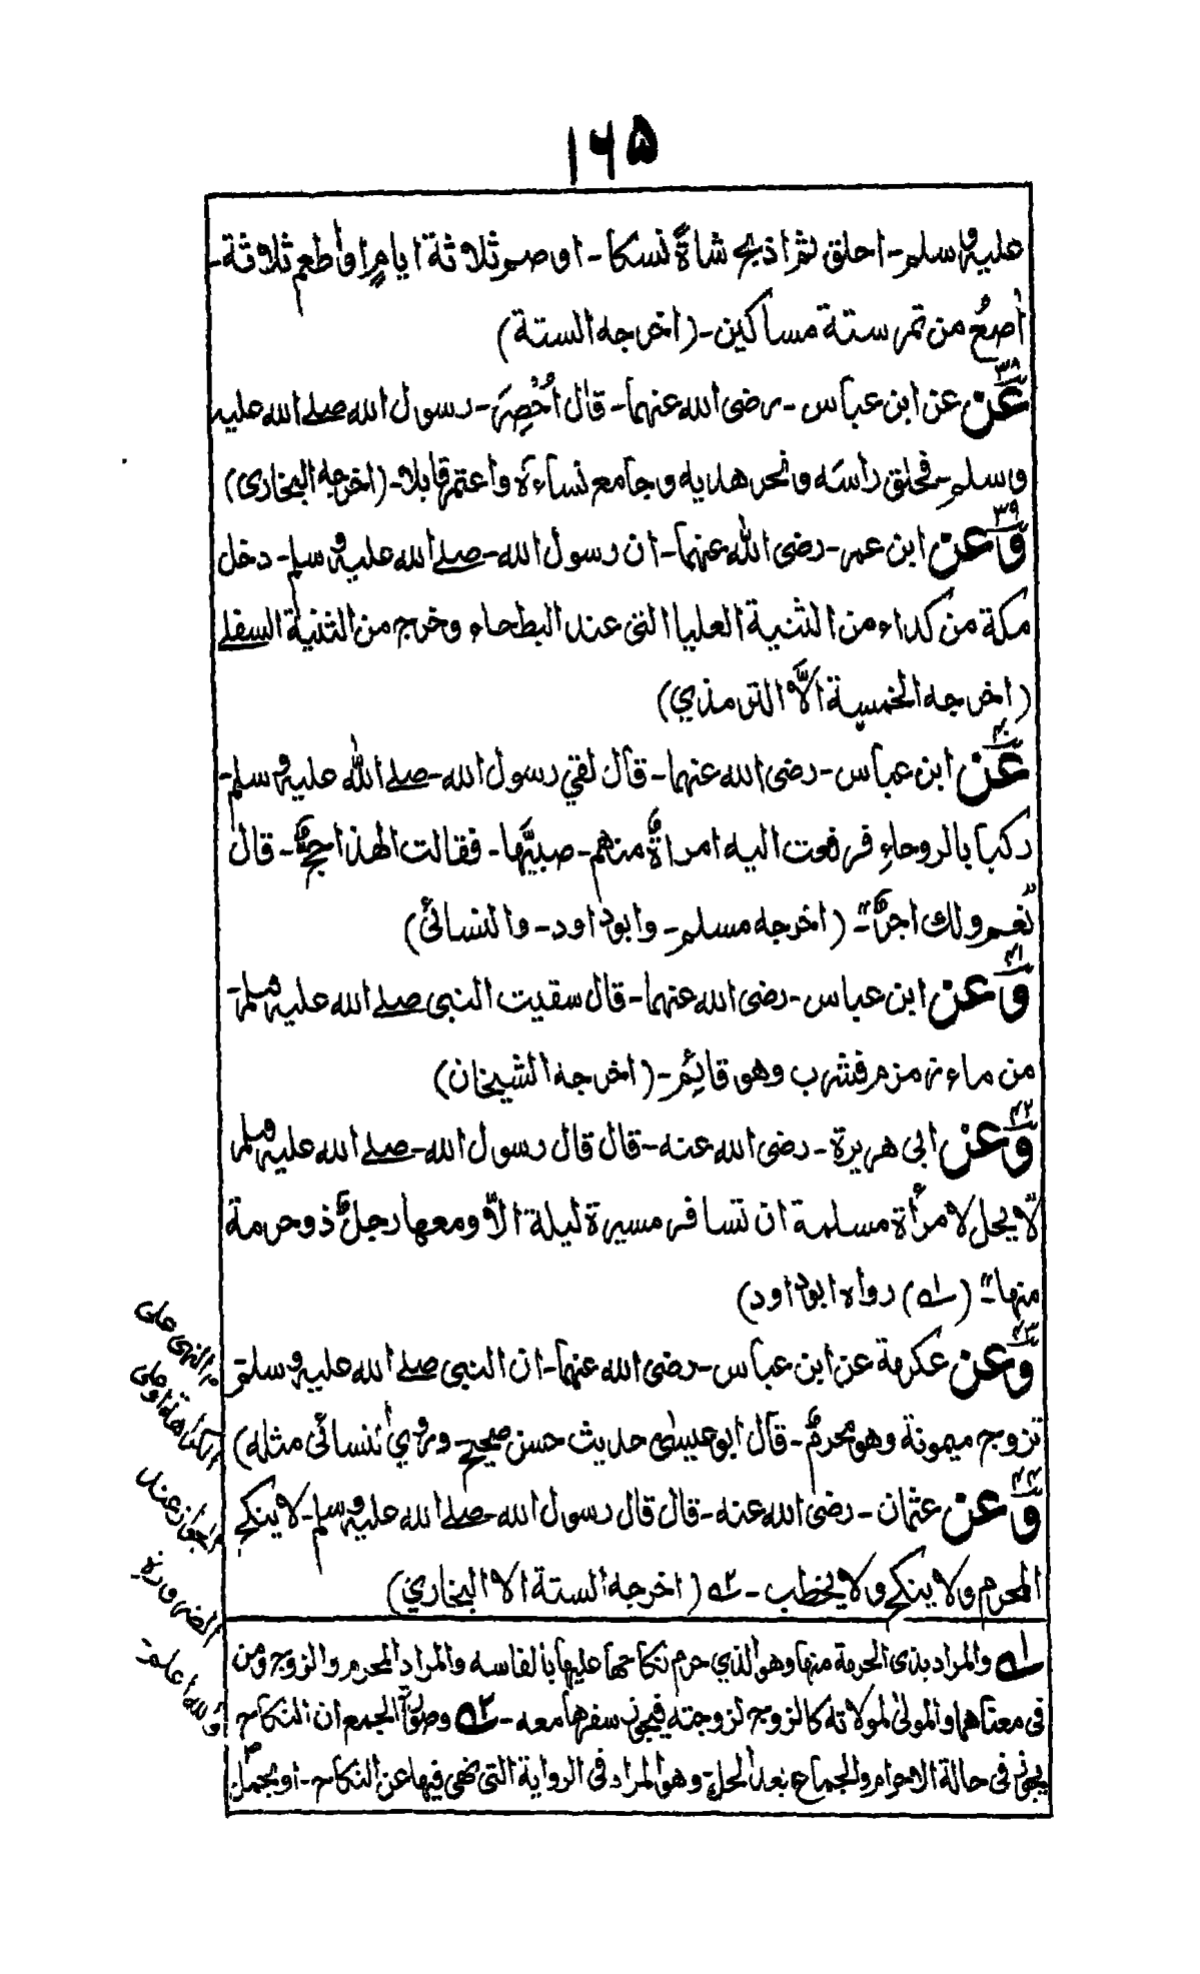 ۱۶۵
عليه وسلم۔ احلق ثم اذبح شاةً نسكا۔ او صم ثلاثة ايامٍ او أطعم ثلاثة۔
أصعٍ من تمر ستة مساكين۔ (اخرجه الستة)
۳۸
عَن عن ابن عباس۔ رضى الله عنهما۔ قال أُحْصِرَ۔ رسول الله صلے الله عليه
وسلم۔ فحلق رأسَه ونحر هديه وجامع نساءه واعتمر قابلا۔ (اخرجه البخارى)
۳۹
وَعن ابن عمر۔ رضى الله عنهما۔ ان رسول الله۔ صلے الله عليه وسلم۔ دخل
مكة من كداء من الثنية العليا التى عند البطحاء وخرج من الثنية السفلے
(اخرجه الخمسة الّا الترمذي)
۴۰
عَن ابن عباس۔ رضى الله عنهما۔ قال لقي رسول الله۔ صلے الله عليه وسلم۔
ركبا بالروحاءِ فرفعت اليه امرأةٌ منهم۔ صبيًّا لها۔ فقالت الهذا حجٌ۔ قال
نعم ولك اجرٌ"۔ (اخرجه مسلم۔ وابو داود۔ والنسائى)
۴۱
وَعن ابن عباس۔ رضى الله عنهما۔ قال سقيت النبى صلے الله عليه وسلم۔
من ماء زمزم فشرب وهو قائم۔ (اخرجه الشيخان)
۴۲
وَعن ابى هريرة۔ رضى الله عنه۔ قال قال رسول الله۔ صلے الله عليه وسلم
لّا يحل لامرأة مسلمة ان تسافر مسيرة ليلة الّا ومعها رجلٌ ذو حرمة
منها"۔ (۱ه) رواه ابو داود)
۴۳
وَعن عكرمة عن ابن عباس۔ رضى الله عنهما۔ ان النبى صلے الله عليه وسلم
تزوج ميمونة وهو محرمٌ۔ قال ابو عيسىٰ حديث حسن صحيح۔ وروي أنسائى مثله)
۴۴
وَعن عثمان۔ رضى الله عنه۔ قال قال رسول الله۔ صلے الله عليه وسلم۔ لا ينكح
المحرم ولا ينكح ولا يخطب۔ ۲ه (اخرجه الستة الا البخاري)
۱ه والمراد بذى الحرمة منها وهو الذي حرم نكاحها عليها بالقاسه والمراد المحرم والزوج ومن
فى معناهما والمولىٰ لمولاته كالزوج لزوجته فيجوز سفرها معه۔ ۲ه وصواب الجمع ان النكاح
يجوز فى حالة الاحرام والجماع بعد الحل۔ وهو المراد فى الرواية التى نهى فيها عن النكاح۔ او يحمل
النهى على
الكراهة او على
الجواز عند
الضرورة۔
والله اعلم۔